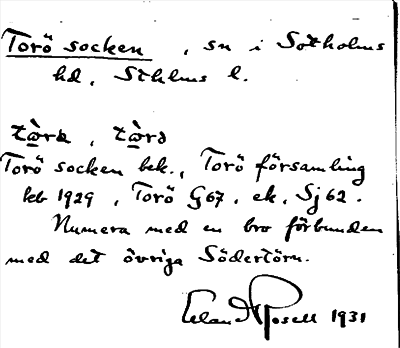 Torö socken, sn i Sotholms
hd, Sthlms l.
tò̱rə, tò̱rə
Torö socken bek., Torö församling
kb 1929, Torö G67, ek. Sj 62.
Numera med en bro förbunden
med det övriga Södertörn.
Erland Rosell 1931